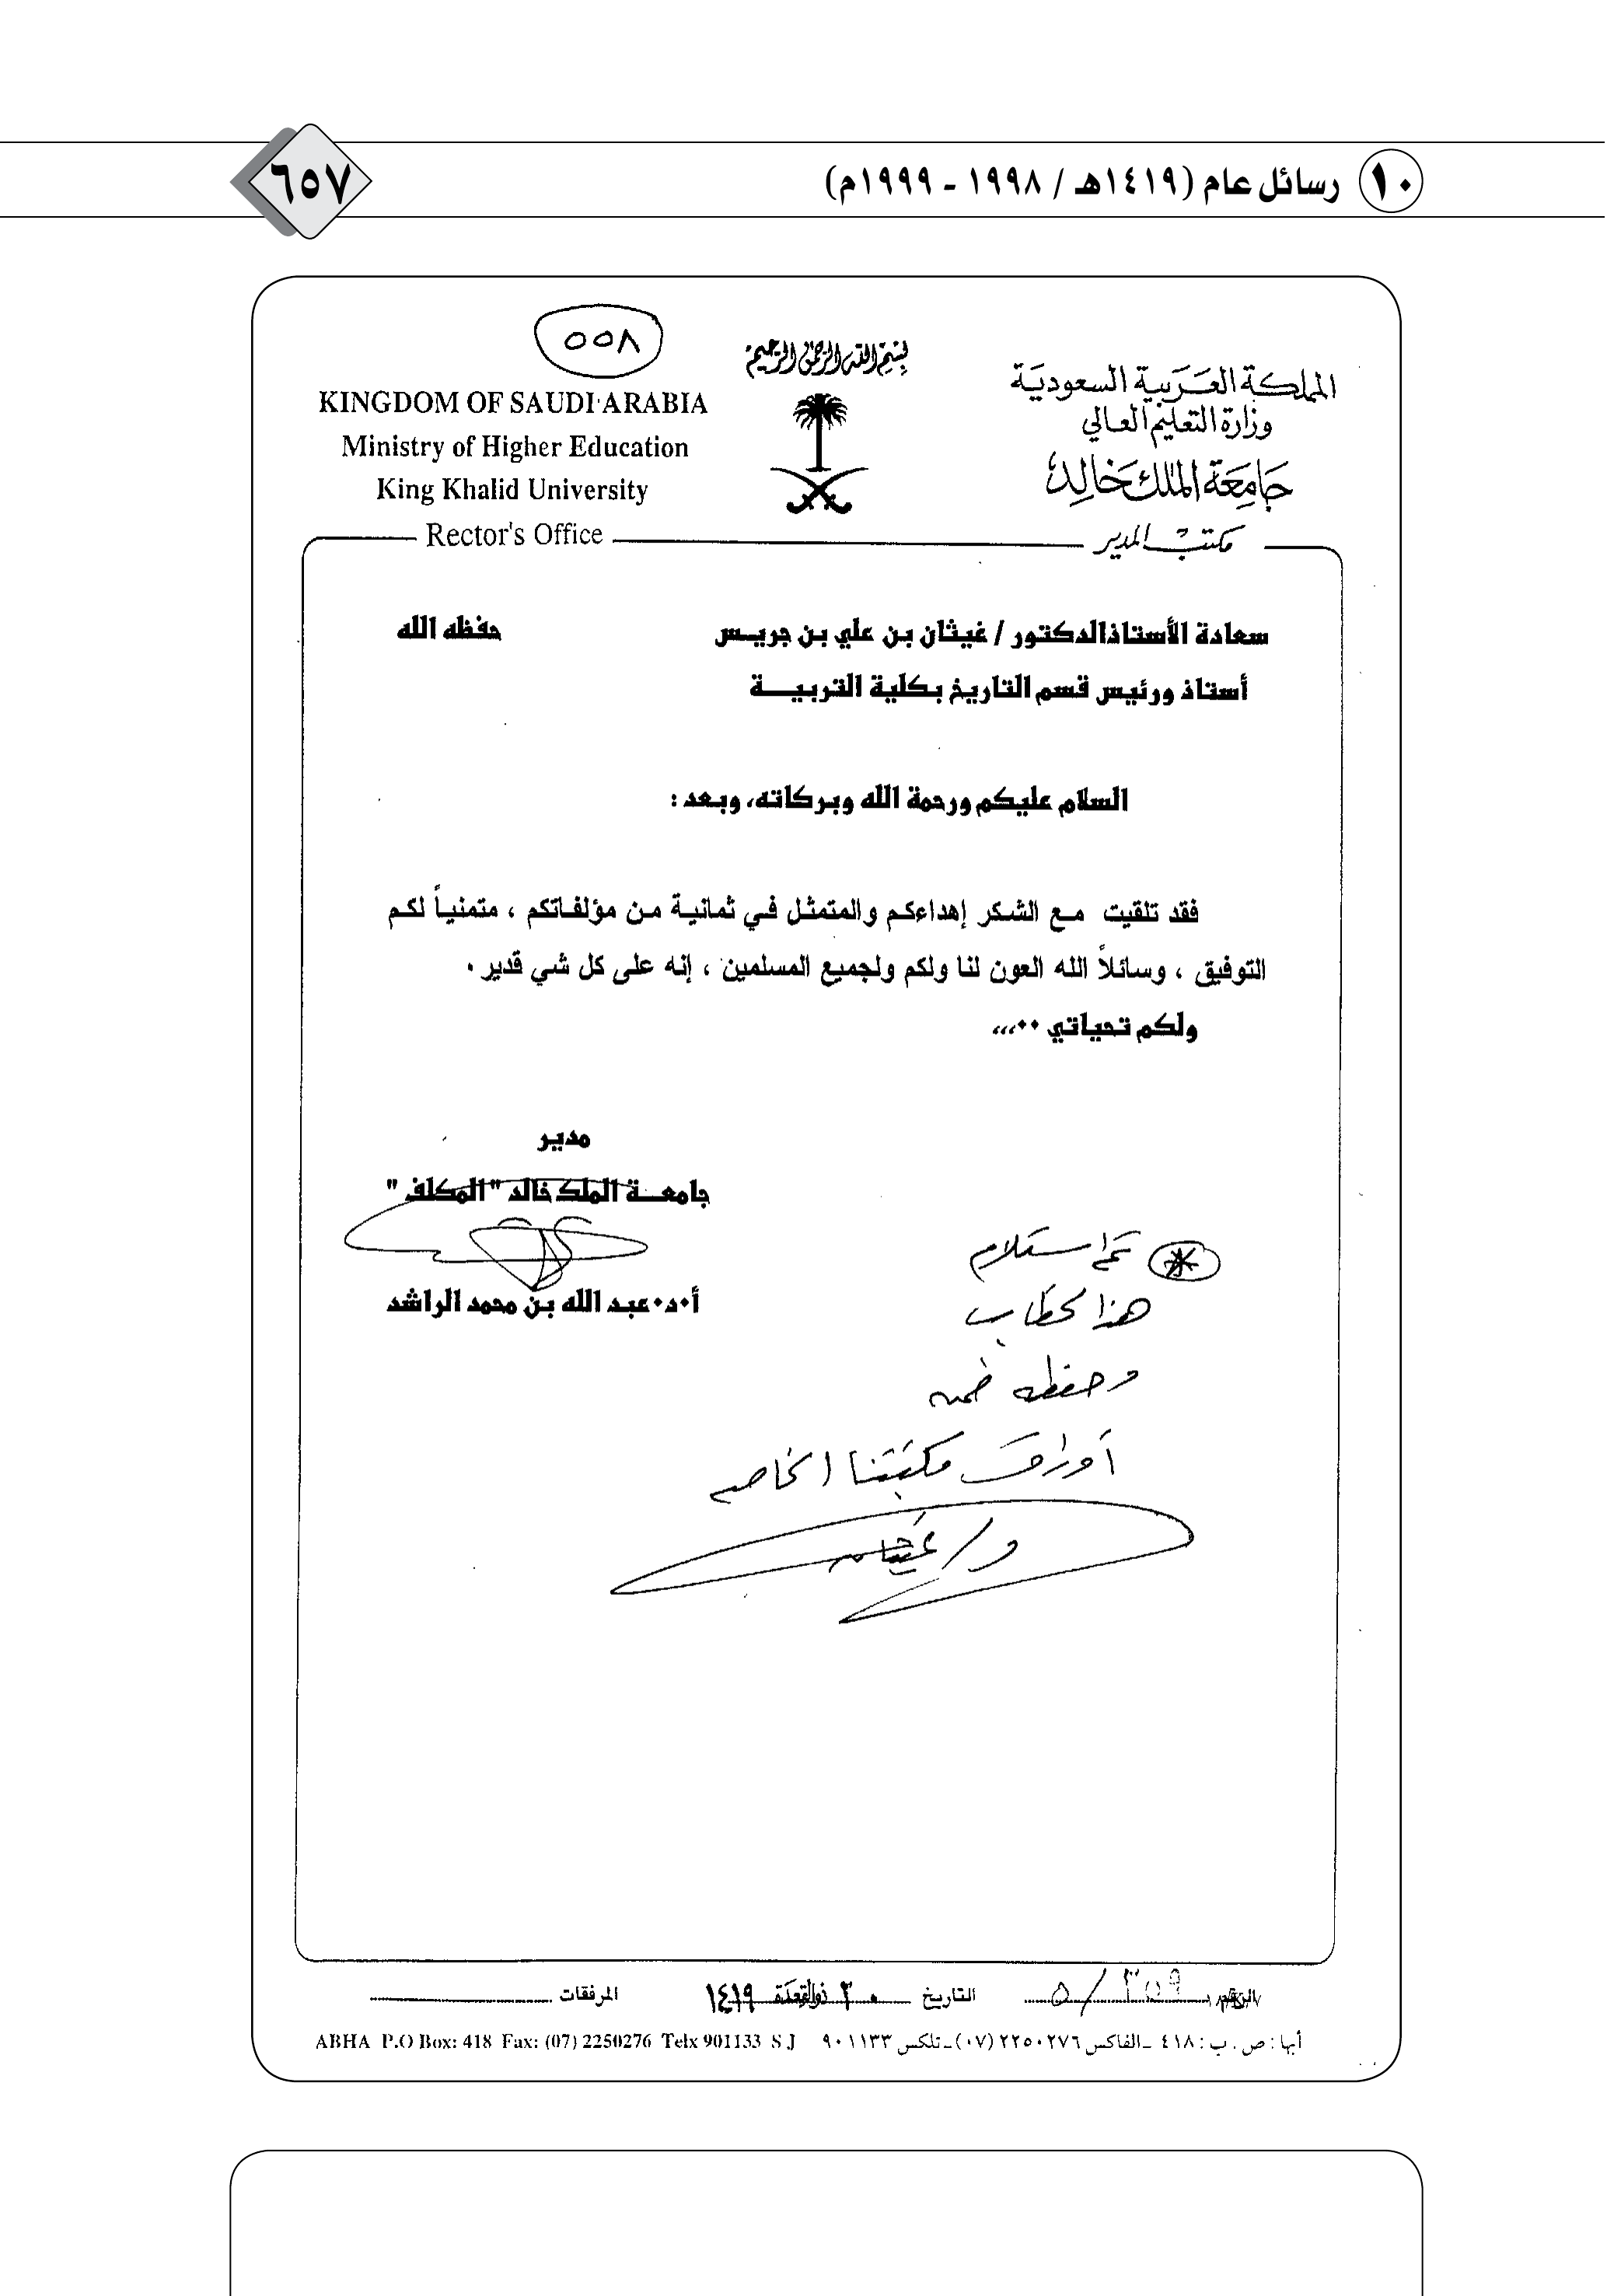 ١٠ رسائل عام (١٤١٩هـ / ١٩٩٨ - ١٩٩٩م)
٦٥٧
٥٥٨
بسم الله الرحمن الرحيم
المملكة العربية السعودية
وزارة التعليم العالي
جامعة الملك خالد
مكتب المدير
KINGDOM OF SAUDI ARABIA
Ministry of Higher Education
King Khalid University
Rector's Office
سعادة الأستاذ الدكتور / غيثان بن علي بن جريس حفظه الله
أستاذ ورئيس قسم التاريخ بكلية التربية
السلام عليكم ورحمة الله وبركاته، وبعد :
فقد تلقيت مع الشكر إهداءكم والمتمثل في ثمانية من مؤلفاتكم ، متمنياً لكم
التوفيق ، وسائلاً الله العون لنا ولكم ولجميع المسلمين ، إنه على كل شي قدير ٠
ولكم تحياتي ٠٠،،،
مدير
جامعة الملك خالد "المكلف"
أ٠د٠عبد الله بن محمد الراشد
تم استلام
هذا الخطاب
وحفظه ضمن
أوراق مكتبتنا الخاصه
د/ غيثان
الرقم ٥/٣٥٩ التاريخ ٢٠ ذو القعدة ١٤١٩ المرفقات
أبها : ص . ب : ٤١٨ ـ الفاكس ٢٢٥٠٢٧٦ (٠٧) ـ تلكس ٩٠١١٣٣ ABHA P.O Box: 418 Fax: (07) 2250276 Telx 901133 S J